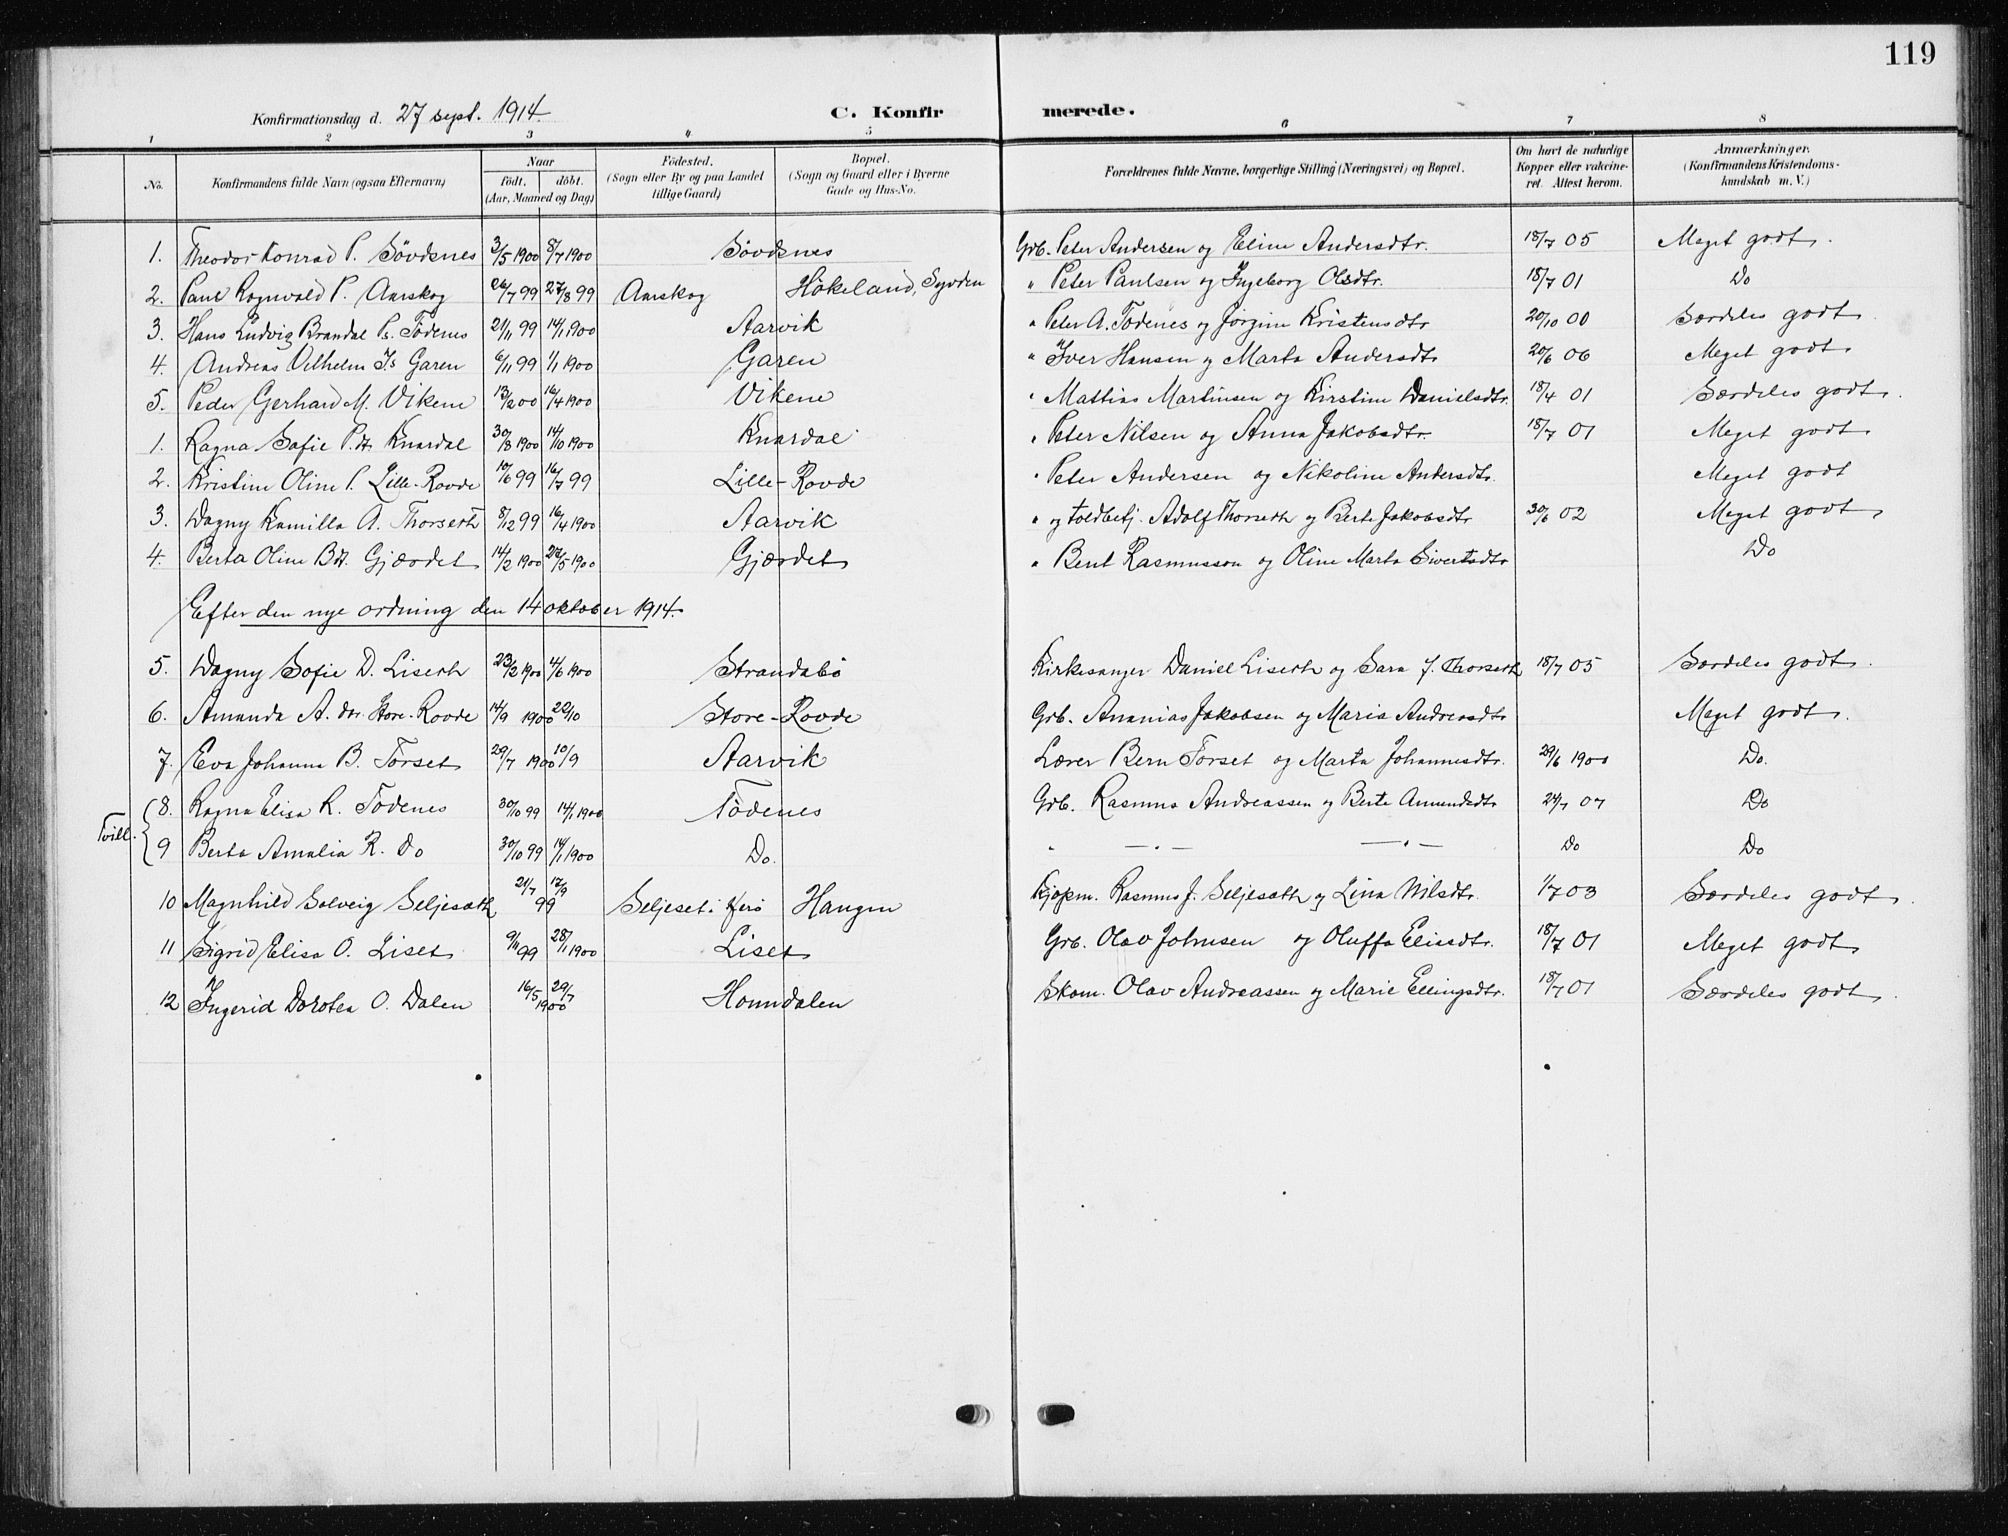 119
Konfirmationsdag d. 27 sept. 1914. C. Konfirmerede.
1 2 3 4 5 6 7 8
No. Konfirmandens fulde Navn (ogsaa Efternavn) Naar födt. döbt. (Aar, Maaned og Dag) Födested. (Sogn eller By og paa Landet tillige Gaard) Bopæl. (Sogn og Gaard eller i Byerne Gade og Hus-No. Forældrenes fulde Navne, borgerlige Stilling (Næringsvei) og Bopæl. Om havt de naturlige Kopper eller vakcineret. Attest herom. Anmærkninger. (Konfirmandens Kristendomskundskab m. V.)
1. Theodor Konrad P. Sövdsnes 3/5 1900 8/7 1900 Sövdsnes Grb. Peter Andersen og Eline Andersdtr. 18/7 05 Meget godt.
2. Paul Ragnvald P. Aarskog 26/7 99 27/8 99 Aarskog Hökeland, Syvden " Peter Paulsen og Ingeborg Olsdtr. 18/7 01 Do
3. Hans Ludvig Brandal Ps. Tödenes 21/11 99 14/1 1900 Aarvik " Peter A. Tödenes og Jörgine Kristensdtr 20/10 00 Særdeles godt
4. Andreas Vilhelm Is Garen 6/11 99 1/1 1900 Garen " Iver Hansen og Marta Andersdtr 20/6 06 Meget godt
5. Peder Gerhard M. Vikene 13/2 00 16/4 1900 Vikene " Mattias Martinsen og Kirstine Danielsdtr. 18/4 01 Særdeles godt.
1. Ragna Sofie P.dt. Knardal 30/8 1900 14/10 1900 Knardal " Peter Nilsen og Anna Jakobsdtr. 18/7 01 Meget godt
2. Kristine Oline P. Lille-Rovde 10/6 99 16/7 99 Lille-Rovde " Peter Andersen og Nikoline Andersdtr. Meget godt
3. Dagny Kamilla A. Thorseth 8/12 99 16/4 1900 Aarvik " og toldbetj. Adolf Thorseth og Berte Jakobsdtr 30/6 02 Meget godt
4. Berta Oline Bdt. Gjærdet 14/2 1900 27/5 1900 Gjærdet " Bent Rasmussen og Oline Marta Sivertsdtr Do
Efter den nye ordning den 14 oktober 1914.
5. Dagny Sofie D. Liseth 23/2 1900 4/6 1900 Strandabö Kirkesanger Daniel Liseth og Sara J. Thorseth 18/7 05 Særdeles godt.
6. Amanda A. dtr. Store-Rovde 14/9 1900 22/10 Store-Rovde Grb. Ananias Jakobsen og Maria Andreasdtr Meget godt.
7. Eva Johanna B. Torset 29/7 1900 10/9 Aarvik Lærer Bern Torset og Marta Johannesdtr. 29/6 1900 Do.
Tvill. 8. Ragna Elisa R. Tödenes 30/10 99 14/1 1900 Tödenes Grb. Rasmus Andreassen og Berte Amundsdtr 24/7 07 Do
9 Berta Amalia R. Do 30/10 99 14/1 1900 Do. " — " — — " — Do Do
10 Magnhild Solveig Seljesæth 21/7 17/9 99 Seljeset i Herö Haugen Kjøpm. Rasmus J. Seljesæth og Lina Nilsdtr. 1/7 03 Særdeles godt.
11 Sigrid Elisa O. Liset 9/11 99 28/1 1900 Liset Grb. Olav Johnsen og Oluffa Elisdtr. 18/7 01 Meget godt
12 Ingerid Dorotea O. Dalen 16/5 29/7 1900 Homdalen Skom. Olav Andreassen og Marie Ellingsdtr. 18/7 01 Særdeles godt.